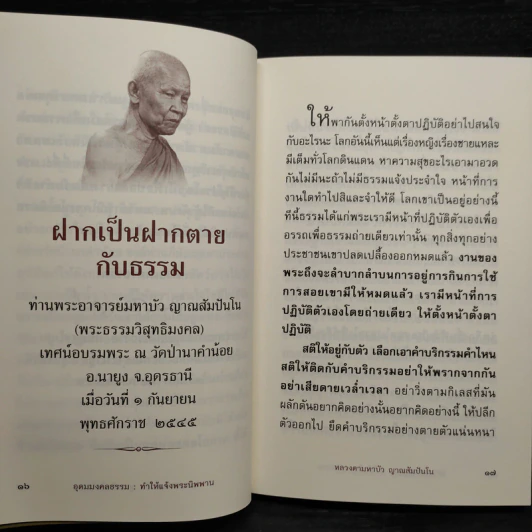 ฝากเป็นฝากตาย
กับธรรม
ท่านพระอาจารย์มหาบัว ญาณสัมปันโน
(พระธรรมวิสุทธิมงคล)
เทศน์อบรมพระ ณ วัดป่านาคำน้อย
อ.นายูง จ.อุดรธานี
เมื่อวันที่ ๑ กันยายน
พุทธศักราช ๒๕๔๕
๑๖
อุดมมงคลธรรม : ทำให้แจ้งพระนิพพาน
ให้พากันตั้งหน้าตั้งตาปฏิบัติอย่าไปสนใจ
กับอะไรนะ โลกอันนี้เห็นแต่เรื่องหญิงเรื่องชายแหละ
มีเต็มทั่วโลกดินแดน หาความสุขอะไรเอามาอวด
กันไม่มีนะถ้าไม่มีธรรมแจ้งประจำใจ หน้าที่การ
งานใดทำไปสิและจำให้ดี โลกเขาเป็นอยู่อย่างนี้
ทีนี้ธรรมได้แก่พระเรามีหน้าที่ปฏิบัติตัวเองเพื่อ
อรรถเพื่อธรรมถ่ายเดียวเท่านั้น ทุกสิ่งทุกอย่าง
ประชาชนเขาปลดเปลื้องออกหมดแล้ว งานของ
พระถึงจะลำบากลำบนการอยู่การกินการใช้
การสอยเขามีให้หมดแล้ว เรามีหน้าที่การ
ปฏิบัติตัวเองโดยถ่ายเดียว ให้ตั้งหน้าตั้งตา
ปฏิบัติ
สติให้อยู่กับตัว เลือกเอาคำบริกรรมคำไหน
สติให้ติดกับคำบริกรรมอย่าให้พรากจากกัน
อย่าเสียดายเวล่ำเวลา อย่าวิ่งตามกิเลสที่มัน
ผลักดันอยากคิดอย่างนั้นอยากคิดอย่างนี้ ให้ปลีก
ตัวออกไป ยึดคำบริกรรมอย่างตายตัวแน่นหนา
หลวงตามหาบัว ญาณสัมปันโน
๑๗